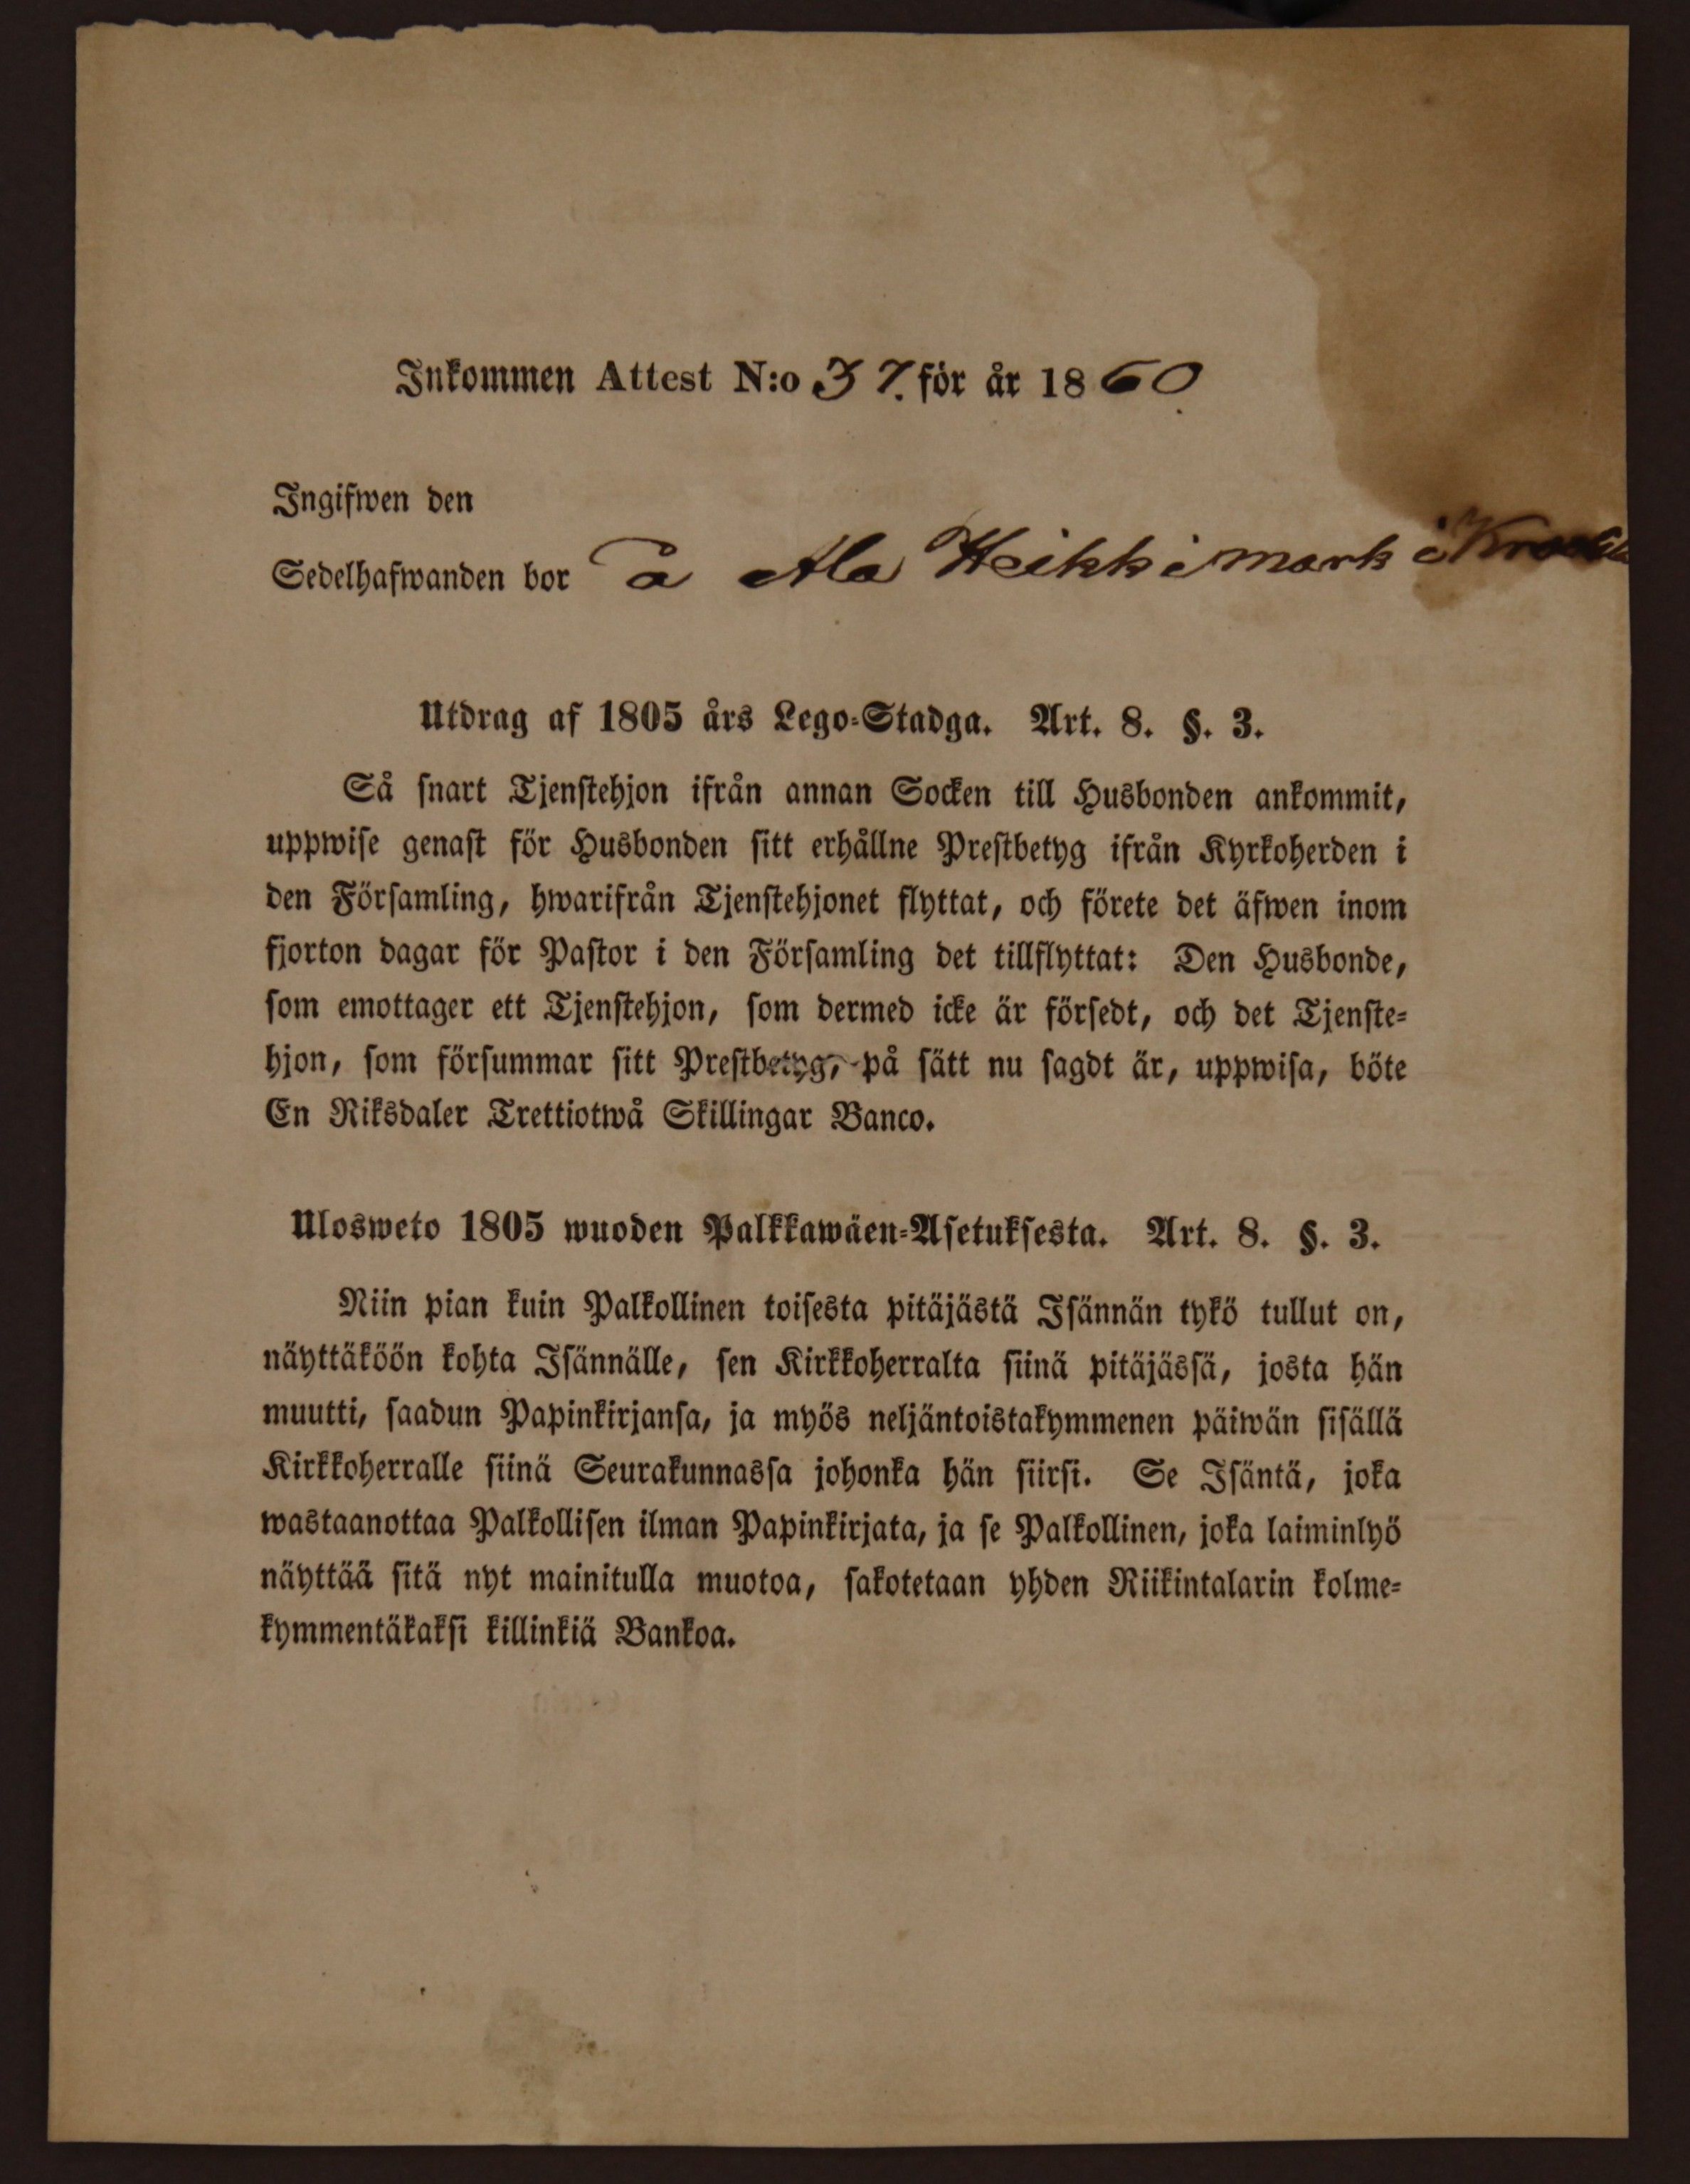 Inkommen Attest N:o 37. för år 1860
Ingifwen den
Sedelhafwanden bor å Ala Heikki mark i
Utdrag af 1805 års Lego-Stadga. Art. 8. §. 3.
Så snart Tjenstehjon ifrån annan Socken till Husbonden ankommit,
uppwise genast för Husbonden sitt erhållne Prestbetyg ifrån Kyrkoherden i
den Församling, hwarifrån Tjenstehjonet flyttat, och förete det äfwen inom
fjorton dagar för Pastor i den Församling det tillflyttat: Den Husbonde,
som emottager ett Tjenstehjon, som dermed icke är försedt, och det Tjenste-
hjon, som försummar sitt Prestbetyg, på sätt nu sagdt är, uppwisa, böte
En Riksdaler Trettiotwå Skillingar Banco.
Ulosweto 1805 wuoden Palkkawäen-Asetuksesta. Art. 8. §. 3.
Niin pian kuin Palkollinen toisesta pitäjästä Isännän tykö tullut on,
näyttäköön kohta Isännälle, sen Kirkkoherralta siinä pitäjässä, josta hän
muutti, saadun Papinkirjansa, ja myös neljäntoistakymmenen päiwän sisällä
Kirkkoherralle siinä Seurakunnassa johonka hän siirsi. Se Isäntä, joka
wastaanottaa Palkollisen ilman Papinkirjata, ja se Palkollinen, joka laiminlyö
näyttää sitä nyt mainitulla muotoa, sakotetaan yhden Riikintalarin kolme-
kymmentäkaksi killinkiä Bankoa.